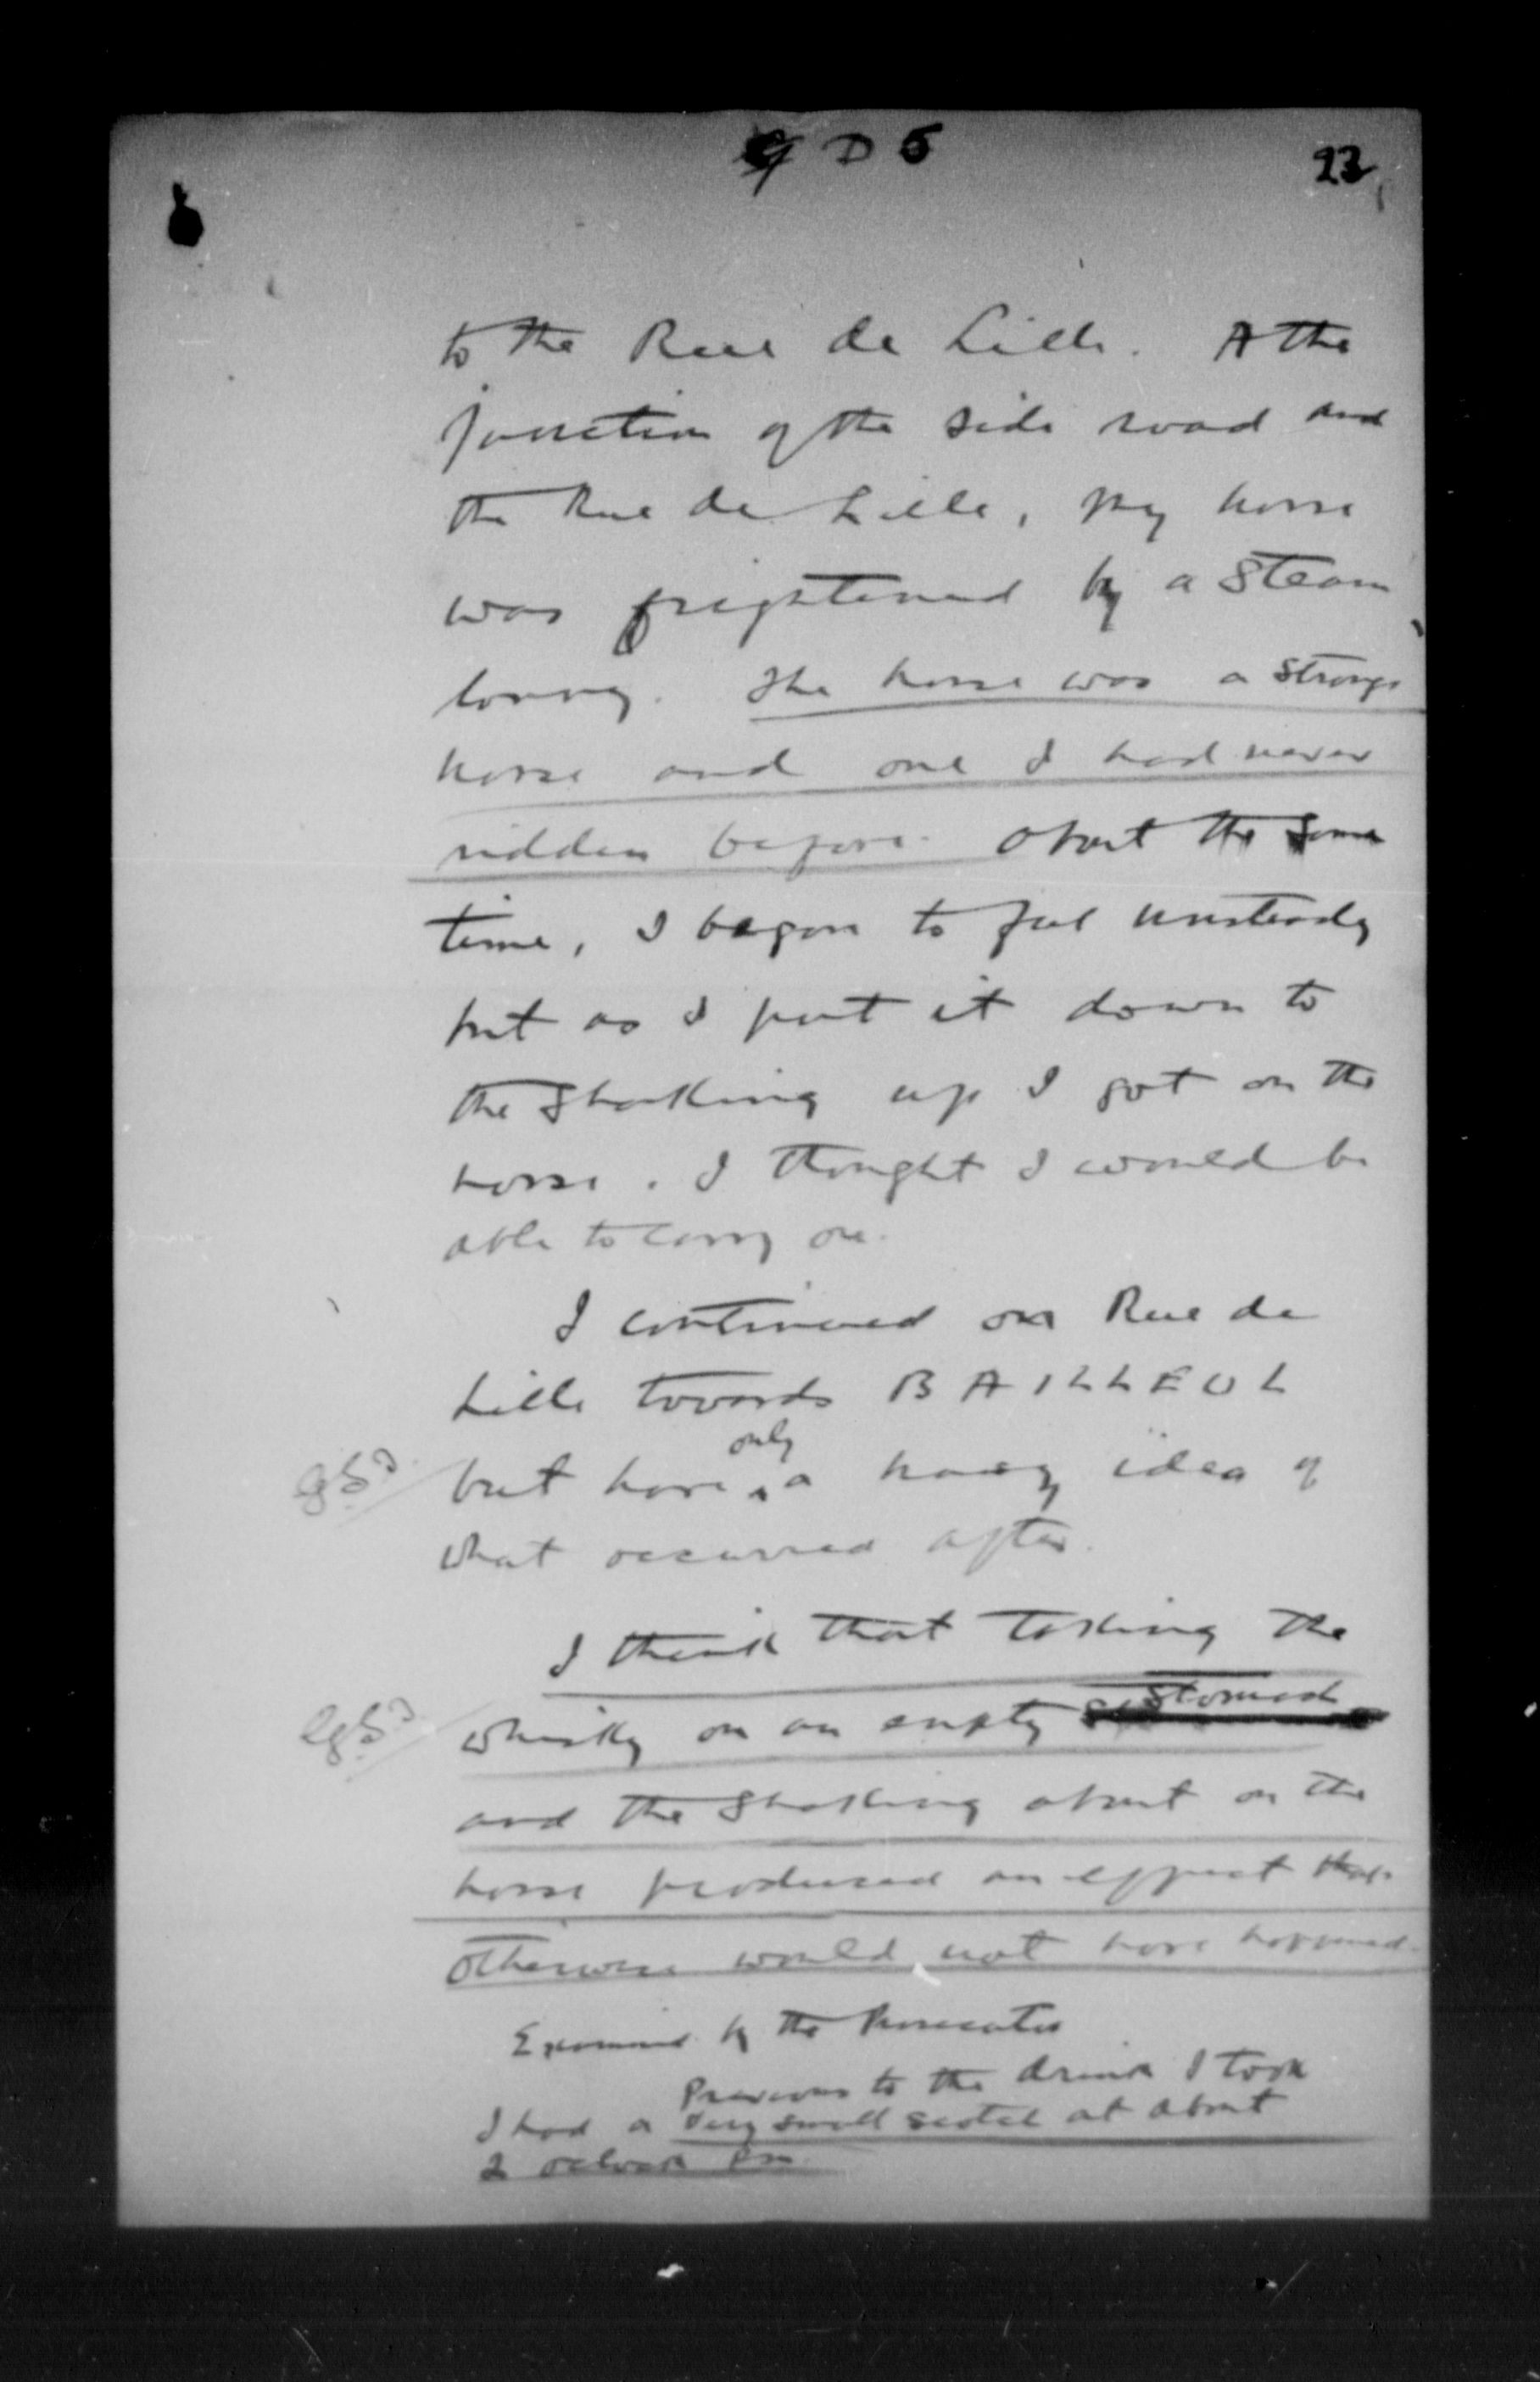 D 5
23
to the Rue de Lille. At the
junction of the side road and
the Rue de Lille, my horse
was frightened by a steam
lorry. The horse was a strong
horse and one I had never
ridden before. About the same
time, I began to feel unsteady
but as I put it down to
the shaking up I got on the
horse. I thought I would be
able to carry on.
I continued on Rue de
Lille towards BAILLEUL
only
but have a hazy idea of
what occurred after.
I think that taking the
whisky on an empty stomach
and the shaking about on the
horse produced an effect that
otherwise would not have happened.
Examined by the Prosecutor
Previous to the drink I took
I had a very small scotch at about
2 oclock pm